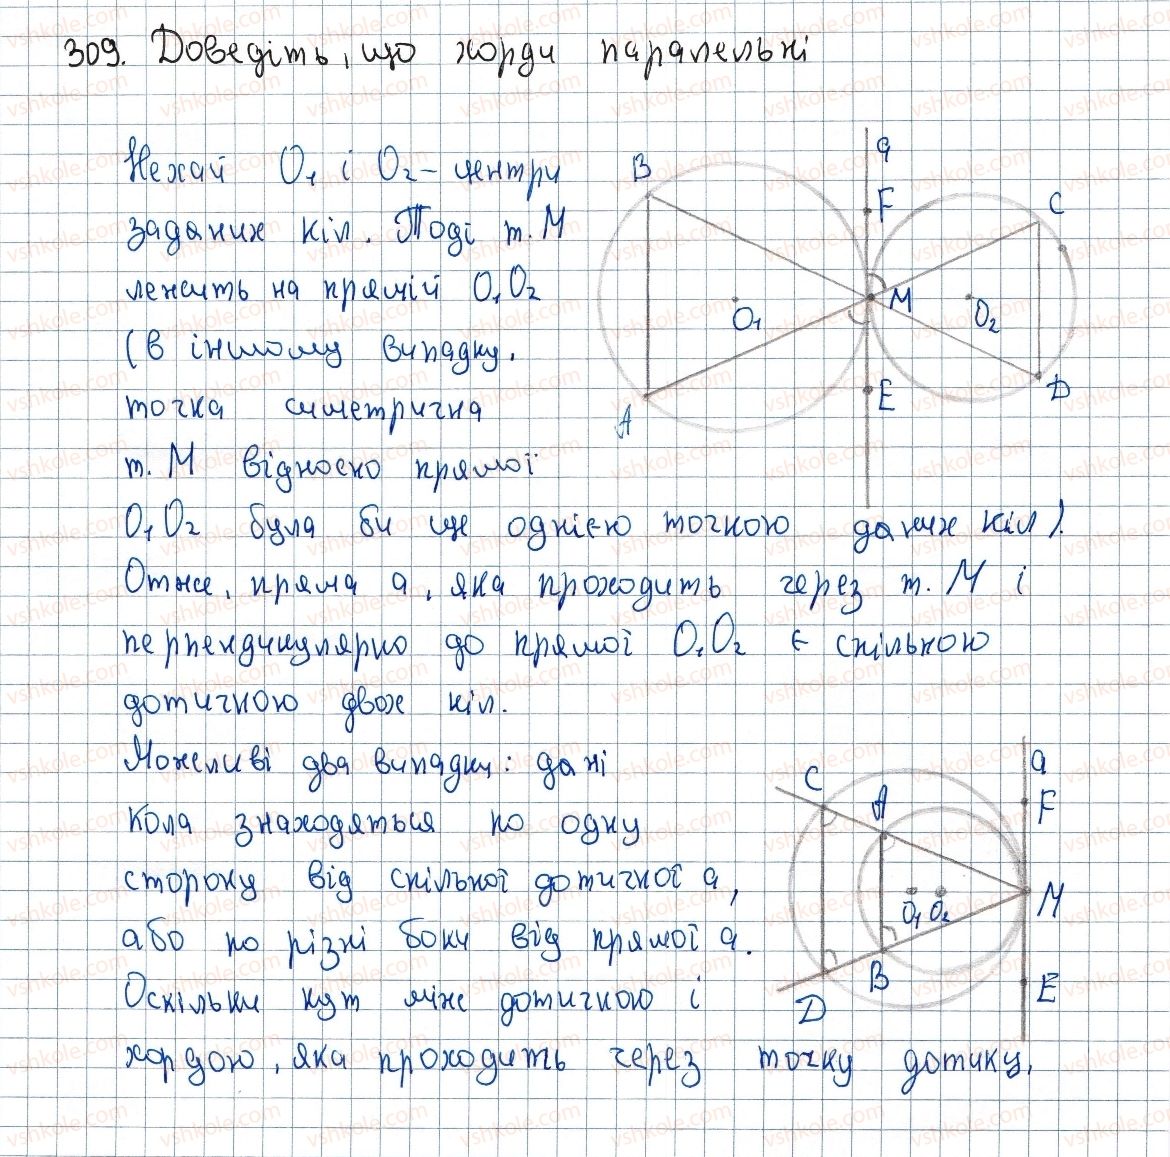 309. Доведіть, що хорди паралельні
Нехай O₁ і O₂ - центри
заданих кіл. Тоді т. M
лежить на прямій O₁O₂
(в іншому випадку,
точка симетрична
т. M відносно прямої
O₁O₂ була би ще однією точкою даних кіл).
Отже, пряма a, яка проходить через т. M і
перпендикулярно до прямої O₁O₂ є спільною
дотичною двох кіл.
Можливі два випадки: дані
кола знаходяться по одну
сторону від спільної дотичної a,
або по різні боки від прямої a.
Оскільки кут між дотичною і
хордою, яка проходить через точку дотику,
B
a
F
C
M
O₁
O₂
E
D
A
a
C
A
F
O₁ O₂
M
B
E
D
vshkole.com